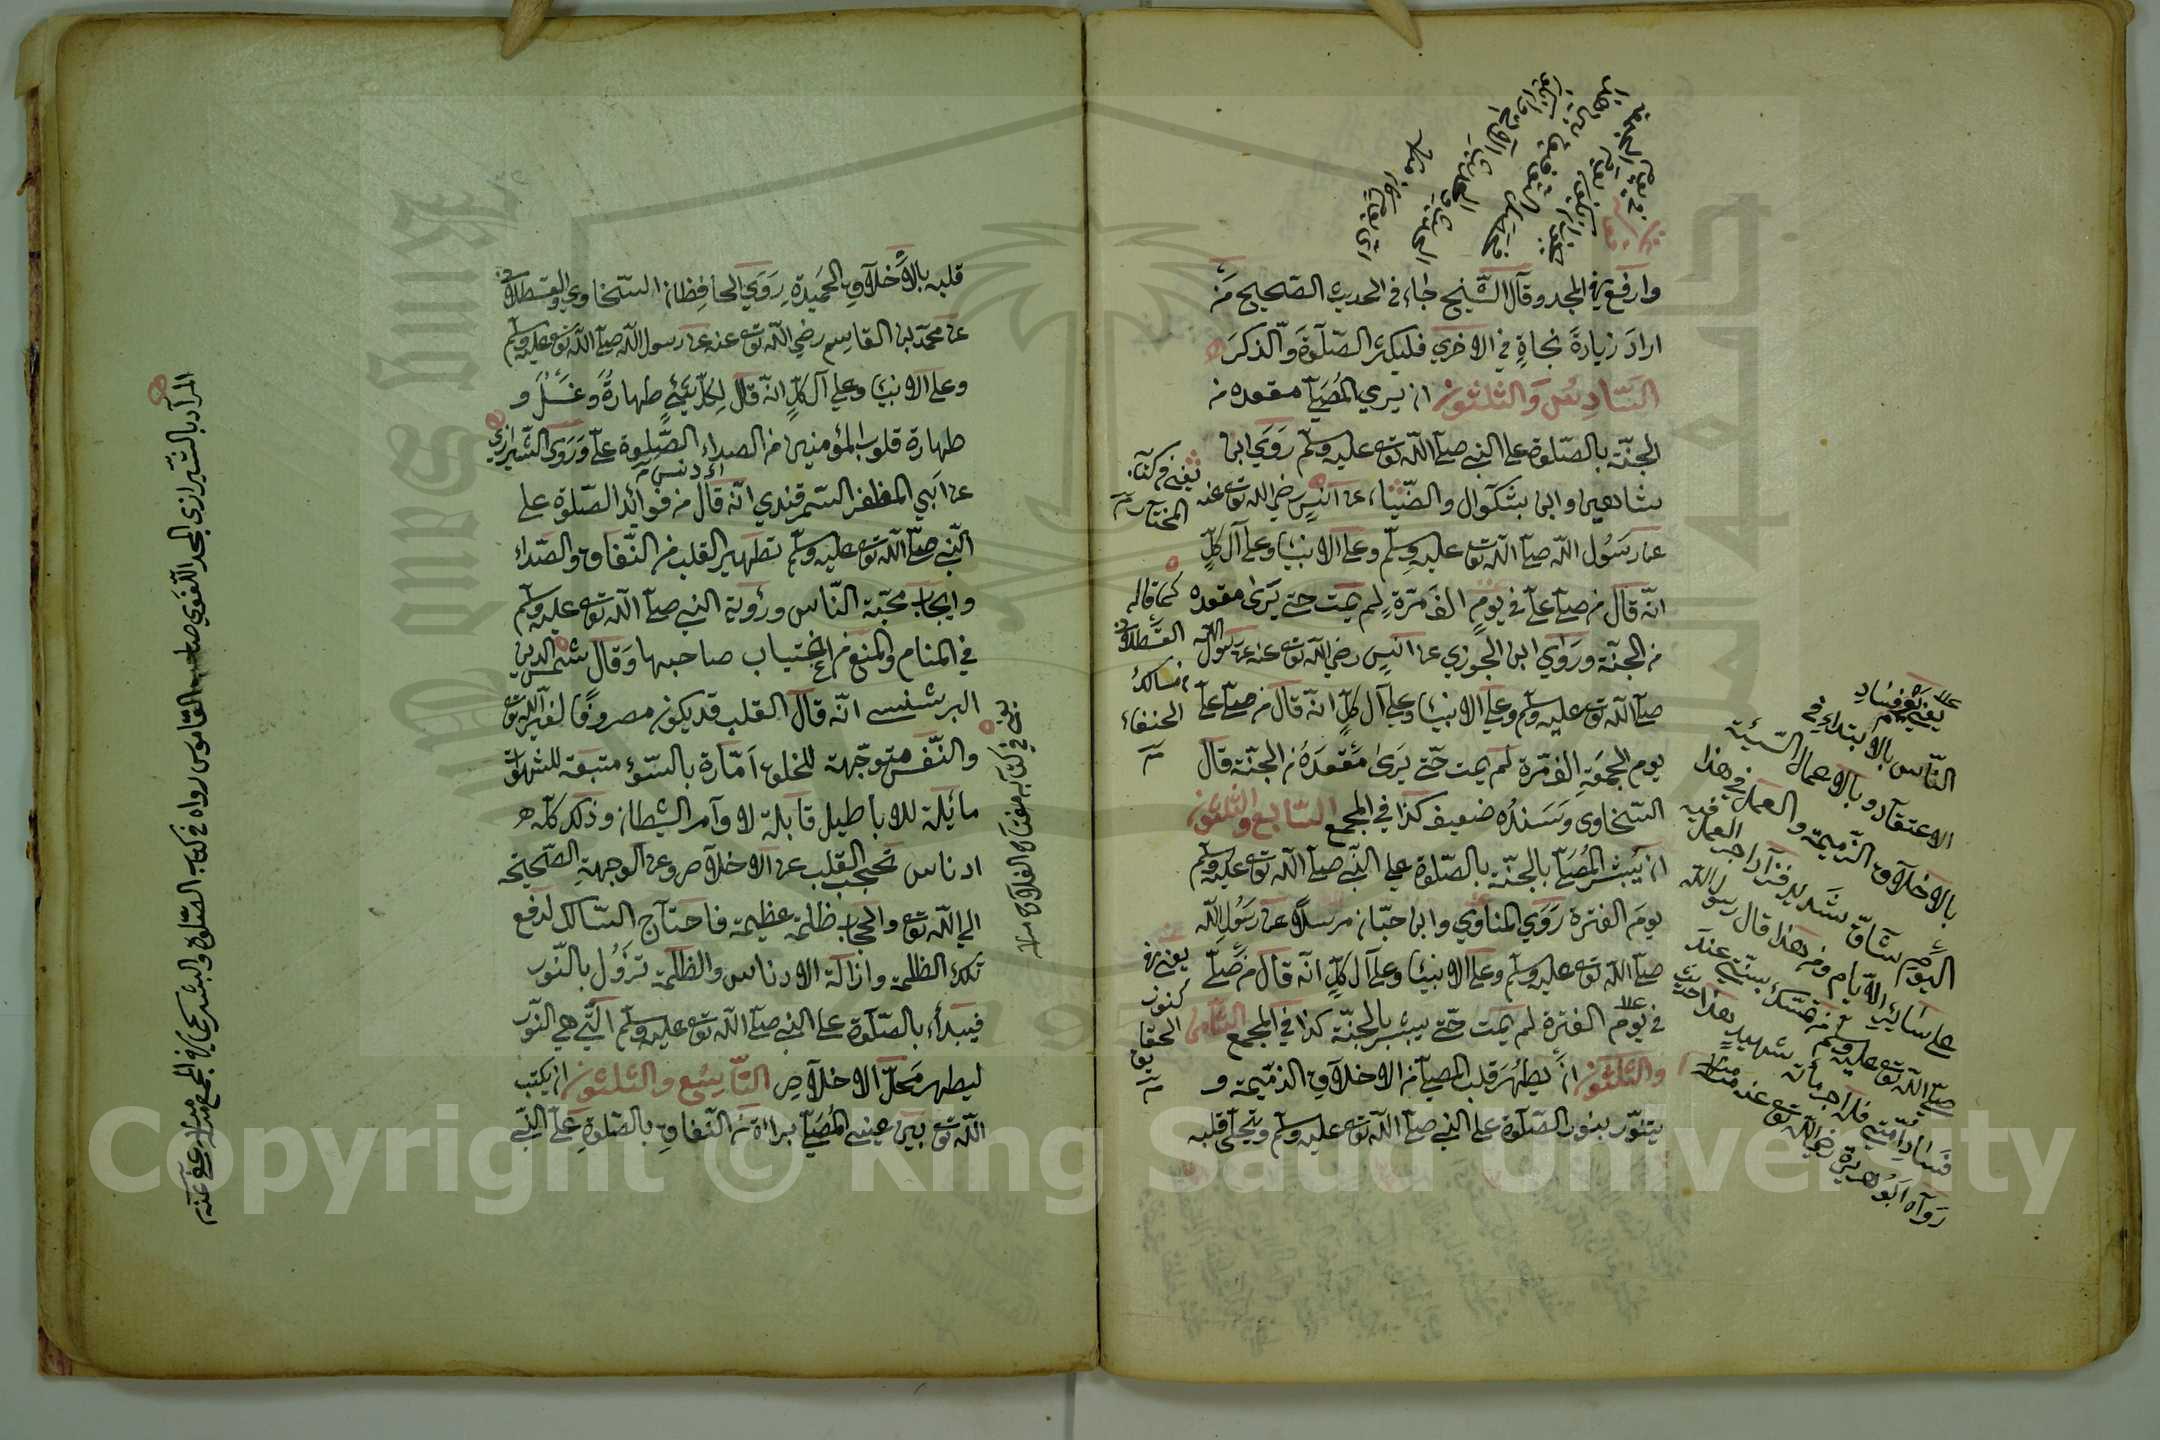 وارفع في المجد وقال الشيخ جاء في الحديث الصحيح من
اراد زيادة نجاة في الاخرى فليكثر الصلوة والذكر
السادس والثلثون ان يرى المصلي مقعده من
الجنة بالصلوة على النبي صلى الله تع عليه وسلم روى ابن
شاهين وابن بشكوال والضياء عن انس رضي الله تع عنه
عن رسول الله صلى الله تع عليه وسلم وعلى الانبيا وعلى آل كل
انه قال من صلى علي في يوم الف مرة لم يمت حتى يرى مقعده
من الجنة وروى ابن الجوزي عن انس رضي الله تع عنه عن رسول الله
صلى الله تع عليه وسلم وعلى الانبيا وعلى آل كل انه قال من صلى علي
يوم الجمعة الف مرة لم يمت حتى يرى مقعده من الجنة قال
السخاوى وسنده ضعيف كذا في المجمع السابع والثلثون
ان يبشر المصلي بالجنة بالصلوة على النبي صلى الله تع عليه وسلم
يوم الفترة روى المناوي وابن حبان مرسلا عن رسول الله
صلى الله تع عليه وسلم وعلى الانبيا وعلى آل كل انه قال من صلى
في يوم الفترة لم يمت حتى يبشر بالجنة كذا في المجمع الثامن
والثلثون ان يطهر قلب المصلي من الاخلاق الذميمة و
يتنور بنور الصلوة على النبي صلى الله تع عليه وسلم ويتحلى قلبه
يعني في كتاب
المختار
كما قاله
القسطلاني
في مسالك
الحنفاء
يعني في
كنوز
الحقايق
يعني يوم فساد
الناس بالابتداع في
الاعتقاد وبالاعمال السيئة
بالاخلاق الذميمة والعمل في هذا
اليوم شاق شديد فزاد اجر العمل فيه
على سائر الايام ومن هذا قال رسول الله
صلى الله تع عليه وسلم من تمسك بسنتي عند
فساد امتي فله اجر مائة شهيد هذا حديث
رواه ابو هريرة رضي الله تع عنه
قلبه بالاخلاق الحميدة روى الحافظان السخاوي والقسطلاني
عن محمد بن القاسم رضي الله تع عنه عن رسول الله صلى الله تع عليه وسلم
وعلى الانبيا وعلى آل كل انه قال لكل شئ طهارة وغسل و
طهارة قلوب المؤمنين من الصداء الصلوة علي وروى الشيرازي
اي دنس
عن ابي المظفر السمرقندي انه قال من فوائد الصلوة على
النبي صلى الله تع عليه وسلم تطهير القلب من النفاق والصداء
وايجاب محبة الناس ورؤية النبي صلى الله تع عليه وسلم
في المنام والمنع من اغتياب صاحبها وقال شمس الدين
البرشنسي انه قال القلب قد يكون مصروفا لغير الله تع
والنفس متوجهة للخلق امارة بالسوء متبعة للشهوة
مائلة للاباطيل قابلة لاوامر الشيطان وذلك كله
ادناس تحجب القلب عن الاخلاص وعن الوجهة الصحيحة
الى الله تع والحجاب ظلمة عظيمة فاحتاج السالك لدفع
تلك الظلمة وازالة الادناس والظلمة تزول بالنور
فيبدأ بالصلوة على النبي صلى الله تع عليه وسلم التي هي النور
ليطهر محل الاخلاص التاسع والثلثون ان يكتب
الله تع بين عيني المصلي براءة من النفاق بالصلوة على النبي
في كتابه مفتاح الفلاح
المراد بالشيرازي المجد اللغوي صاحب القاموس رواه في كتابه الصلوة والبشر كما في المجمع